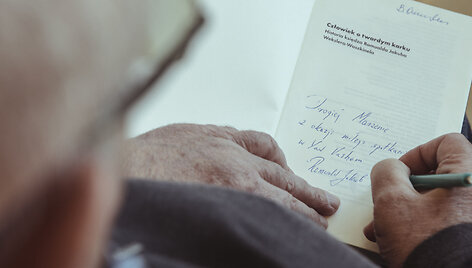 Człowiek o twardym karku
Historia księdza Romualda Jakuba
Wekslera-Waszkinela
Drogiej Marzenie
z okazji miłego spotkania
w Yad Vashem
Romuald Jakub